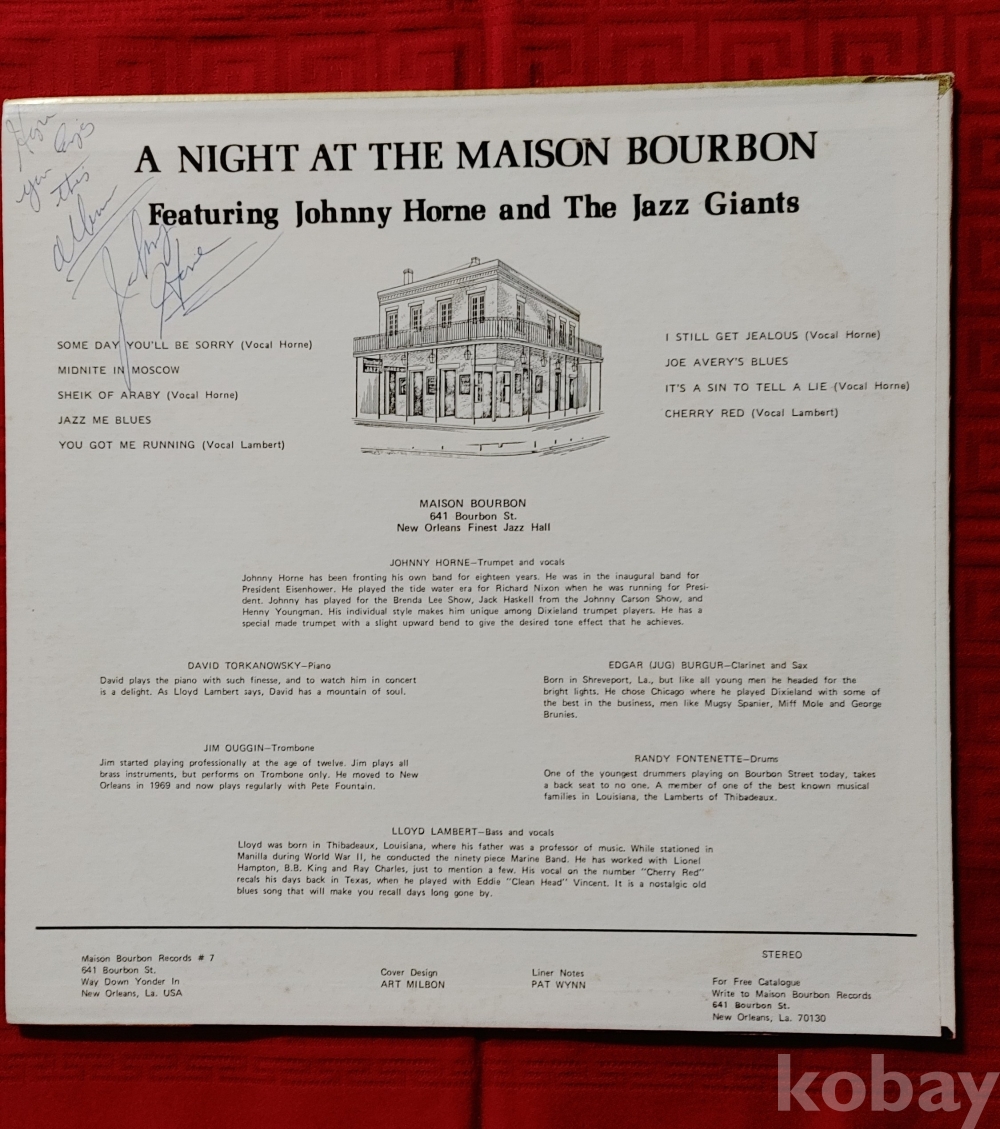 Hope
you enjoy
this
album
Johnny
Horne
A NIGHT AT THE MAISON BOURBON
Featuring Johnny Horne and The Jazz Giants
SOME DAY YOU'LL BE SORRY (Vocal Horne)
MIDNITE IN MOSCOW
SHEIK OF ARABY (Vocal Horne)
JAZZ ME BLUES
YOU GOT ME RUNNING (Vocal Lambert)
I STILL GET JEALOUS (Vocal Horne)
JOE AVERY'S BLUES
IT'S A SIN TO TELL A LIE (Vocal Horne)
CHERRY RED (Vocal Lambert)
MAISON BOURBON
641 Bourbon St.
New Orleans Finest Jazz Hall
JOHNNY HORNE—Trumpet and vocals
Johnny Horne has been fronting his own band for eighteen years. He was in the inaugural band for
President Eisenhower. He played the tide water era for Richard Nixon when he was running for Presi-
dent. Johnny has played for the Brenda Lee Show, Jack Haskell from the Johnny Carson Show, and
Henny Youngman. His individual style makes him unique among Dixieland trumpet players. He has a
special made trumpet with a slight upward bend to give the desired tone effect that he achieves.
DAVID TORKANOWSKY—Piano
David plays the piano with such finesse, and to watch him in concert
is a delight. As Lloyd Lambert says, David has a mountain of soul.
EDGAR (JUG) BURGUR—Clarinet and Sax
Born in Shreveport, La., but like all young men he headed for the
bright lights. He chose Chicago where he played Dixieland with some of
the best in the business, men like Mugsy Spanier, Miff Mole and George
Brunies.
JIM OUGGIN—Trombone
Jim started playing professionally at the age of twelve. Jim plays all
brass instruments, but performs on Trombone only. He moved to New
Orleans in 1969 and now plays regularly with Pete Fountain.
RANDY FONTENETTE—Drums
One of the youngest drummers playing on Bourbon Street today, takes
a back seat to no one. A member of one of the best known musical
families in Louisiana, the Lamberts of Thibadeaux.
LLOYD LAMBERT—Bass and vocals
Lloyd was born in Thibadeaux, Louisiana, where his father was a professor of music. While stationed in
Manilla during World War II, he conducted the ninety piece Marine Band. He has worked with Lionel
Hampton, B.B. King and Ray Charles, just to mention a few. His vocal on the number "Cherry Red"
recals his days back in Texas, when he played with Eddie "Clean Head" Vincent. It is a nostalgic old
blues song that will make you recall days long gone by.
Maison Bourbon Records # 7
641 Bourbon St.
Way Down Yonder In
New Orleans, La. USA
Cover Design
ART MILBON
Liner Notes
PAT WYNN
STEREO
For Free Catalogue
Write to Maison Bourbon Records
641 Bourbon St.
New Orleans, La. 70130
kobay